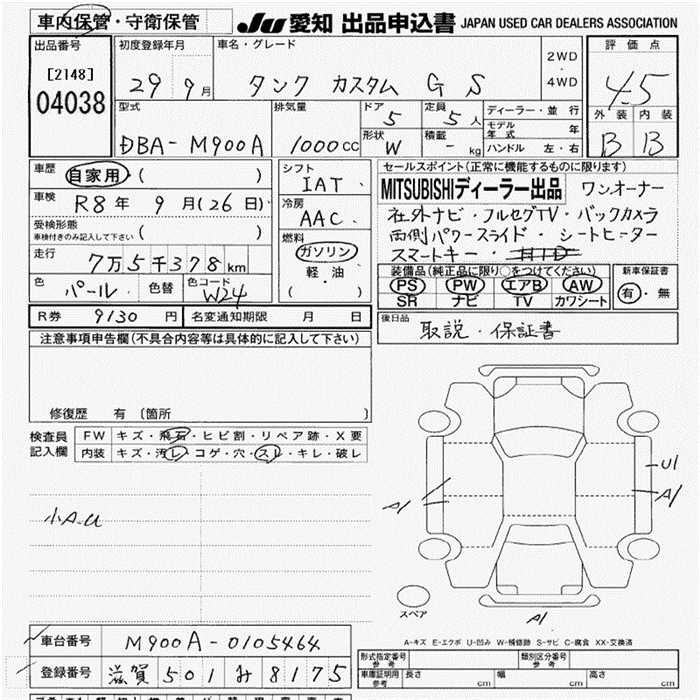 車内保管・守衛保管
JU 愛知 出品申込書 JAPAN USED CAR DEALERS ASSOCIATION
出品番号
[2148]
04038
初度登録年月
29 9月
車名・グレード
タンク カスタム G S
2WD
・
4WD
評価点
4.5
外装 内装
B B
型式
DBA-M900A
排気量
1000cc
ドア
5
定員
5人
形状
W
積載
- kg
ディーラー・並行
モデル年式 年
ハンドル 左・右
車歴
自家用・( )
車検
R8年 9月(26日)
受検形態
車検付きのみ記入して下さい ( )
走行
7万5千378km
色
パール・
色替
色コード
W24
シフト
IAT・
冷房
AAC・
燃料
ガソリン
軽・油
( )
セールスポイント(正常に機能するものに限ります)
MITSUBISHIディーラー出品 ワンオーナー
社外ナビ・フルセグTV・バックカメラ
両側パワースライド・シートヒーター
スマートキー・HID
装備品(純正品に限り○をつけてください)
PS PW エアB AW
SR ナビ TV カワシート
新車保証書
有・無
R券 9130 円
名変通知期限 月 日
後日品
取説・保証書
注意事項申告欄(不具合内容等は具体的に記入して下さい)
修復歴 有〔箇所 〕
検査員
記入欄
FW キズ・飛石・ヒビ割・リペア跡・X要
内装 キズ・汚レ・コゲ・穴・スレ・キレ・破レ
小A.U
A1
U1
A1
A1
スペア
A-キズ E-エクボ U-凹み W-補修跡 S-サビ C-腐食 XX-交換済
車台番号 M900A-0105464
登録番号 滋賀 501 み 8175
形式指定番号
参考
類別区分番号
参考
車庫証明用
参考
長さ cm
幅 cm
高さ cm